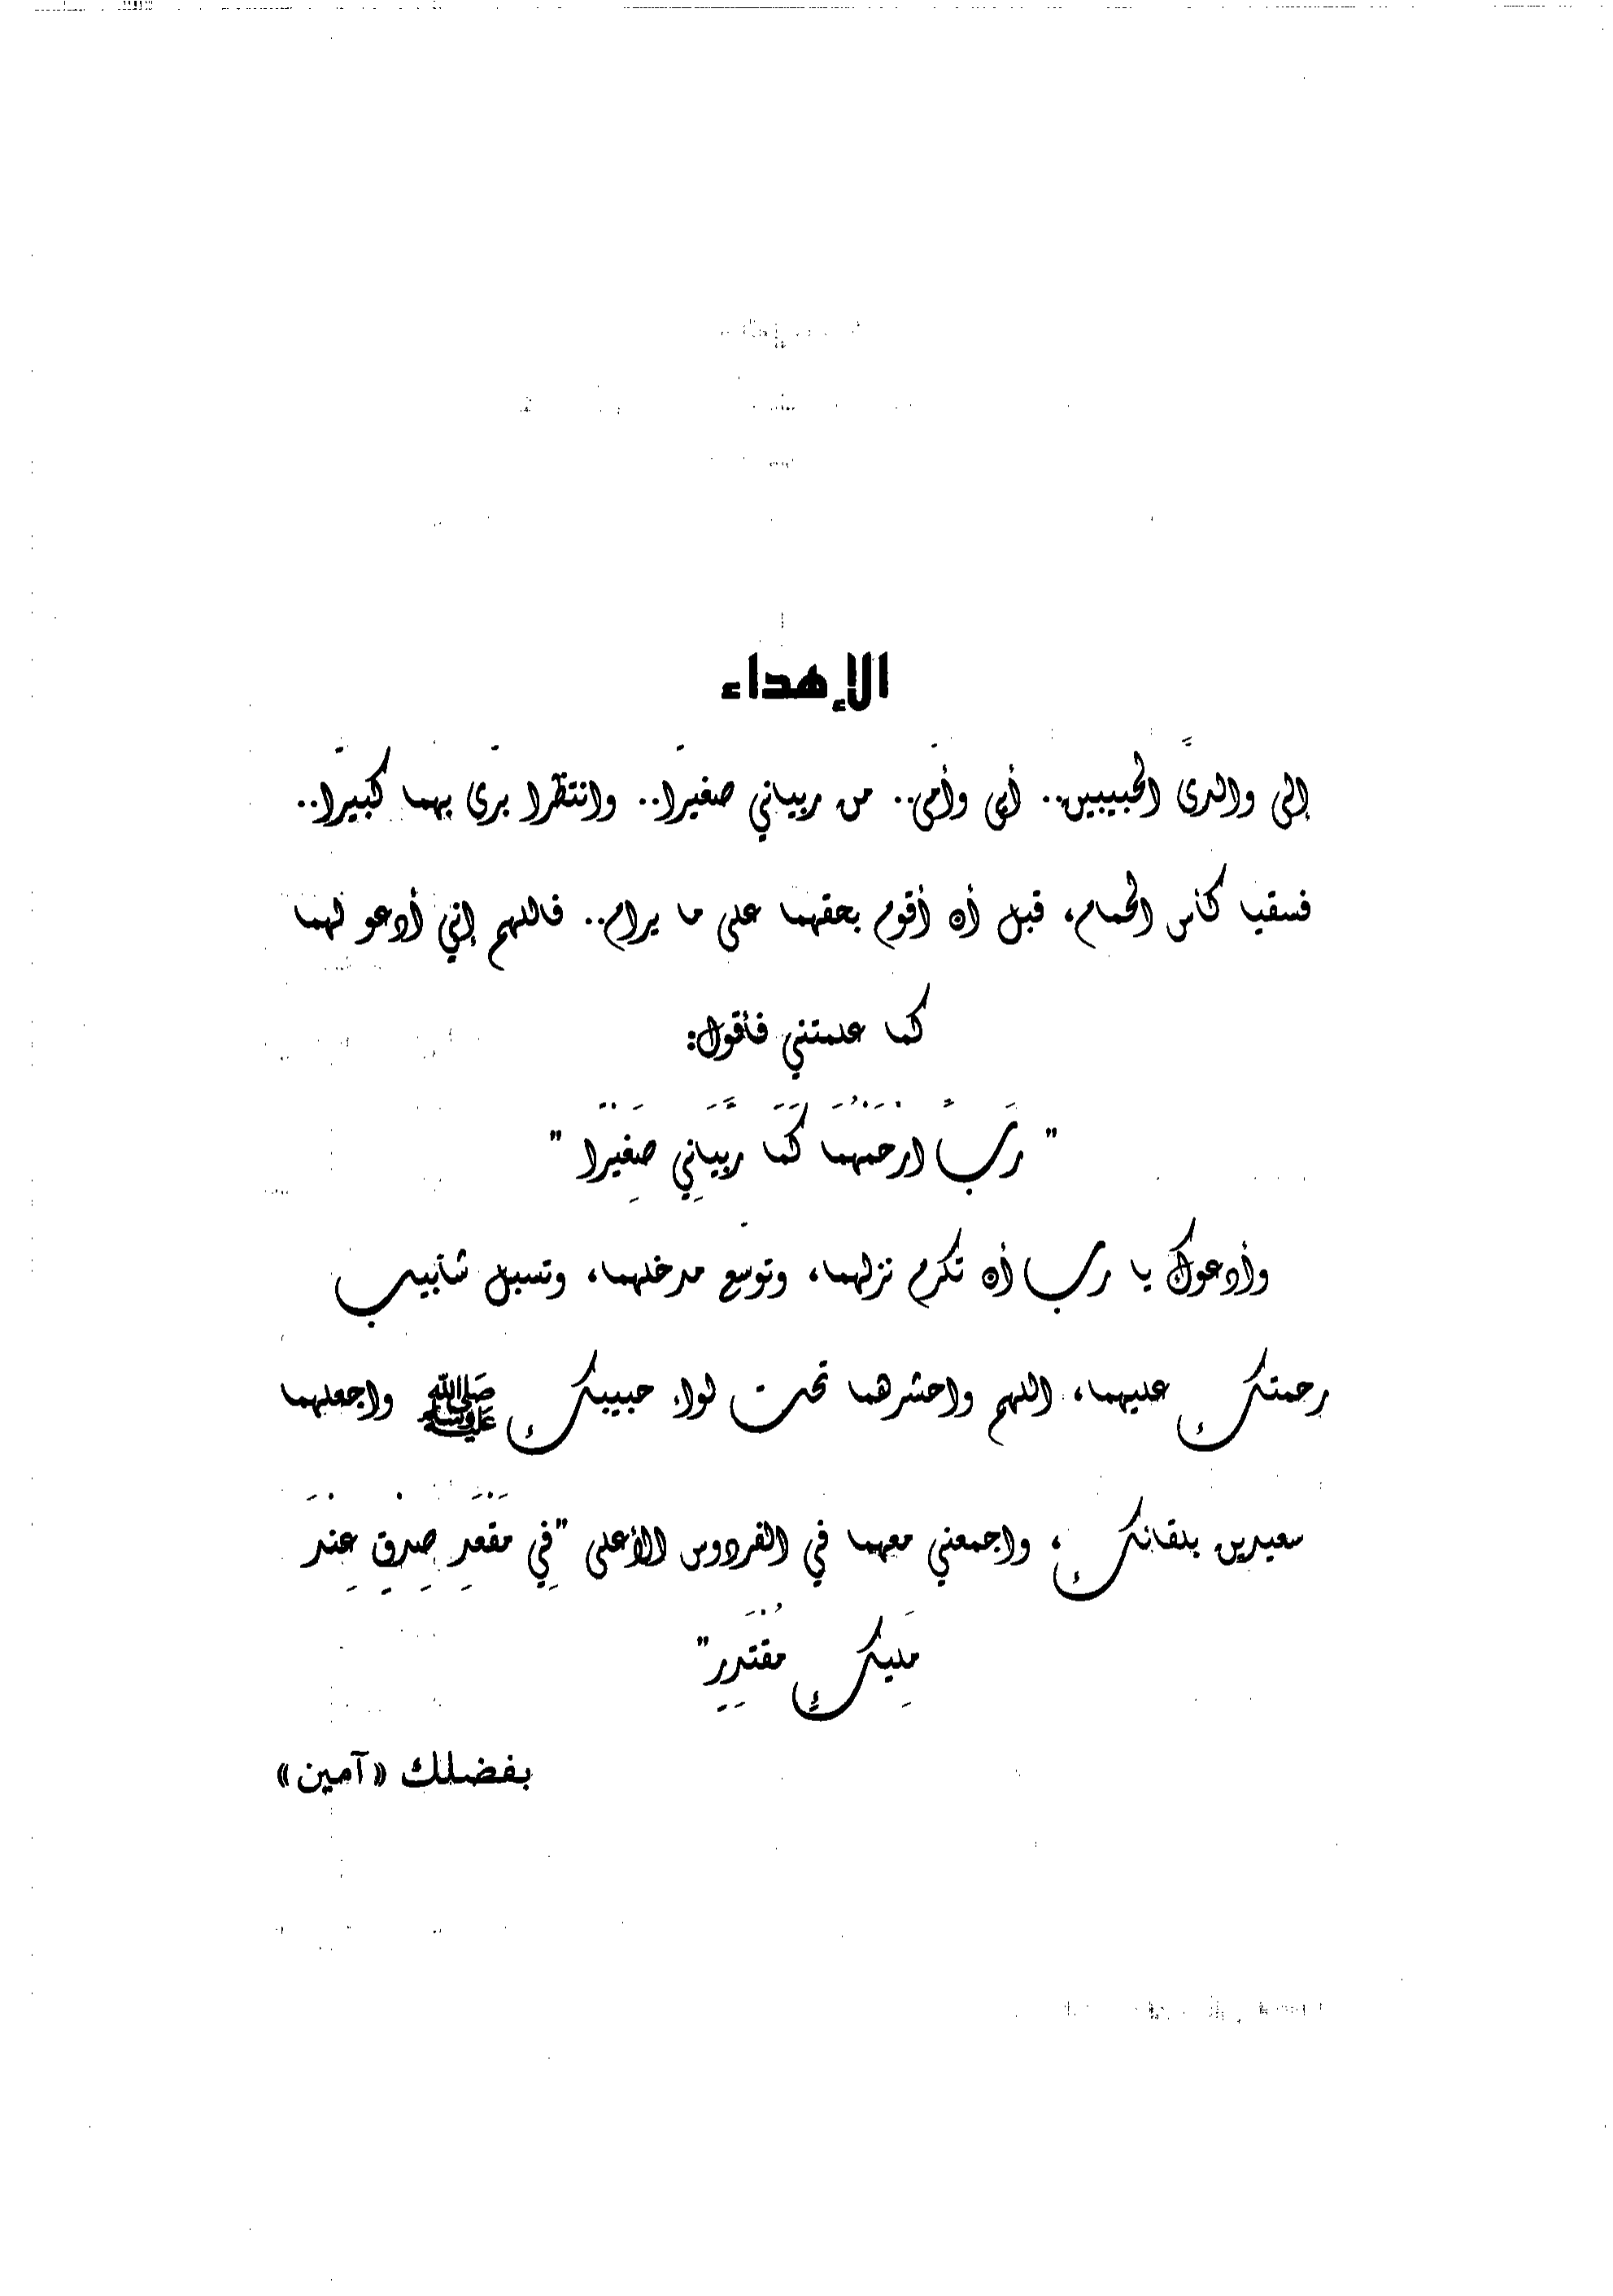 الإهداء
إلى والدىَّ الحبيبين.. أبى وأمى.. من ربياني صغيرا.. وانتظرا برى بهما كبيرا..
فسقيا كأس الحمام، قبل أن أقوم بحقهما على ما يرام.. فاللهم إني أدعو لهما
كما علمتني فأقول:
" رَبِّ ارْحَمْهُمَا كَمَا رَبَّيَانِي صَغِيْرًا "
وأدعوك يا رب أن تكرم نزلهما، وتوسع مدخلهما، وتسبل شآبيب
رحمتك عليهما، اللهم واحشرهما تحت لواء حبيبك ﷺ واجعلهما
سعيدين بلقائك، واجمعني معهما في الفردوس الأعلى "فِي مَقْعَدِ صِدْقٍ عِنْدَ
مَلِيكٍ مُقْتَدِرٍ"
بفضلك «آمين»